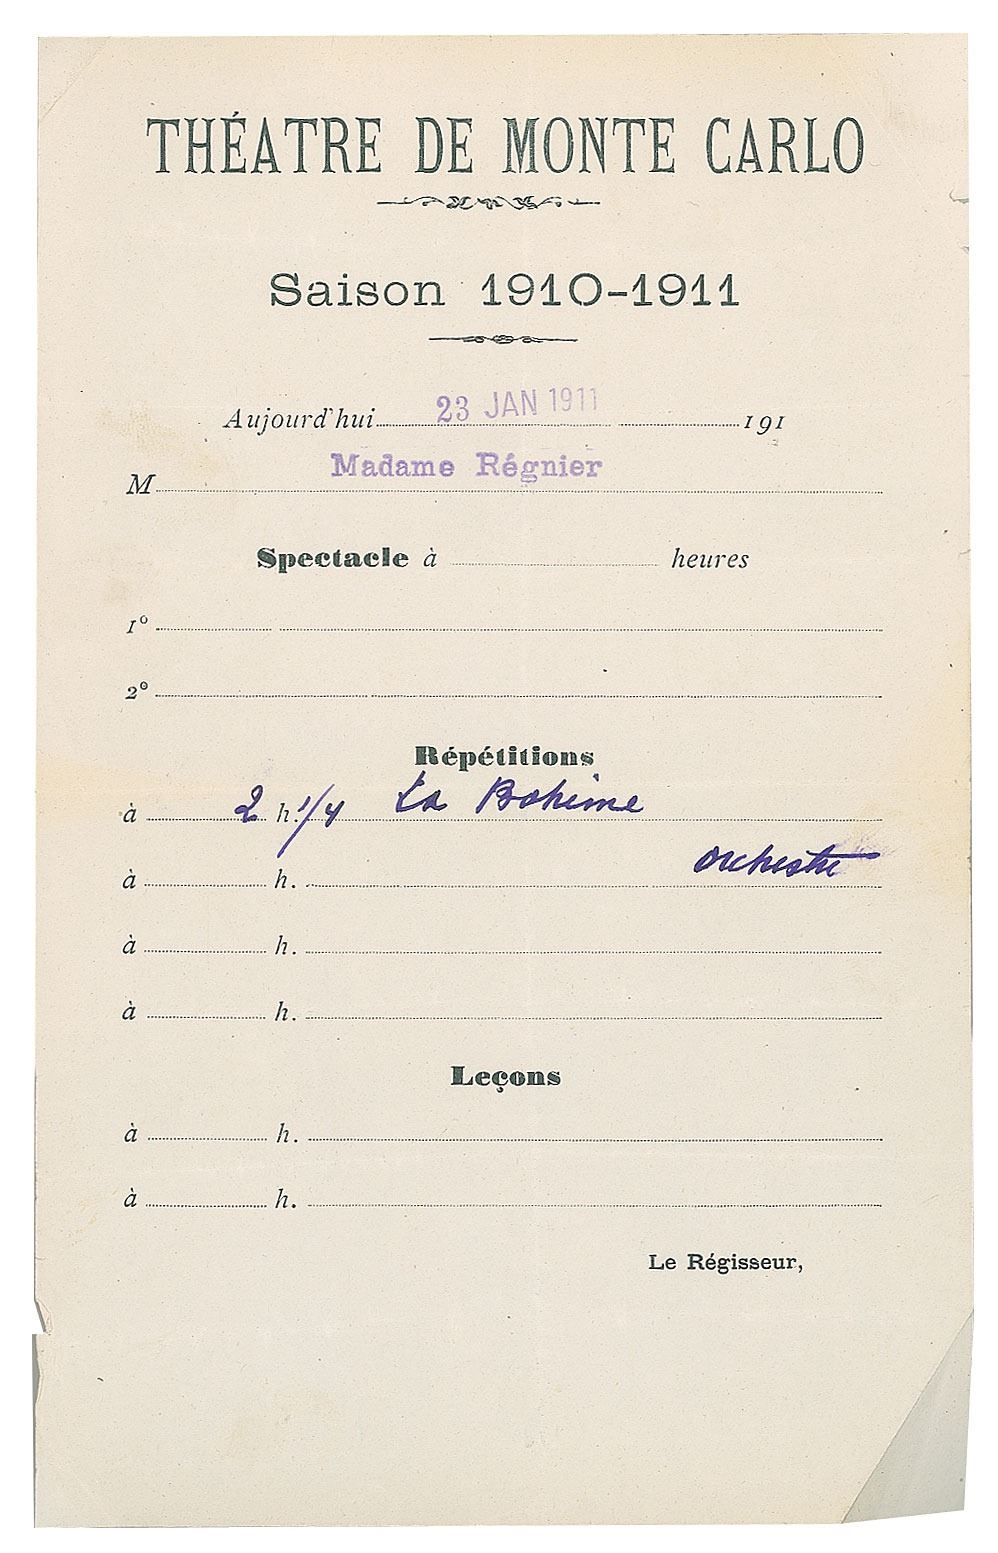 THÉATRE DE MONTE CARLO
Saison 1910-1911
Aujourd'hui 23 JAN 1911 191
M Madame Régnier
Spectacle à heures
1º
2º
Répétitions
à 2 h. 1/4 La Bohème
orchestre
à h.
à h.
à h.
Leçons
à h.
à h.
Le Régisseur,